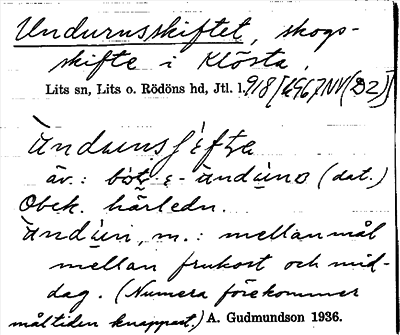 Undurnsskiftet, skogs-
skifte i Klösta,
Lits sn, Lits o. Rödöns hd, Jtl. l. 918 [4967NV(D2)]
äv.: i ändúns (dat.)
Obek. härledn.
ändùn, m.: mellanmål
mellan frukost och mid-
dag. (Numera förekommer
måltiden knappast.) A. Gudmundson 1936.